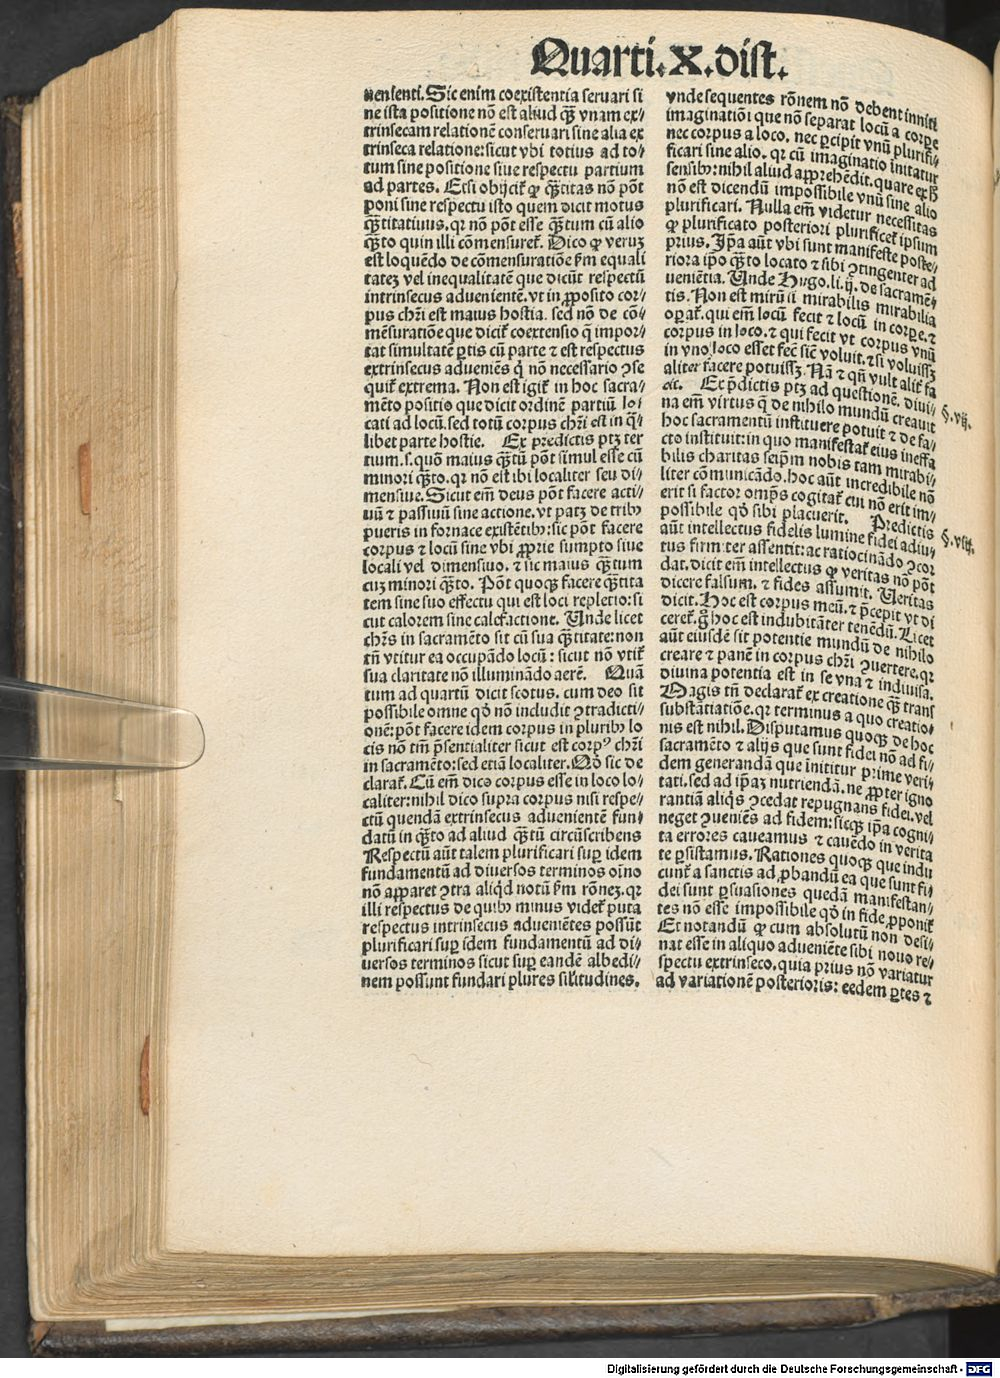 Quarti. X. dist.
uenienti. Sic enim coexistentia seruari si
ne ista positione nō est aliud qȝ vnam ex/
trinsecam relationē conseruari sine alia ex
trinseca relatione: sicut vbi totius ad to/
tum sine positione siue respectu partium
ad partes. Etsi obijcit̄ ꝙ qȝtitas nō pōt
poni sine respectu isto quem dicit motus
qȝtitatiuus. qr nō pōt esse qȝtum cū alio
qȝto quin illi cōmensuret̄. Dico ꝙ veruȝ
est loquēdo de cōmensuratiōe ẜm equali
tateȝ vel inequalitatē que dicūt respectū
intrinsecus aduenientē. vt in ꝓposito cor/
pus chr̄i est maius hostia. sed nō de cō/
mēsuratiōe que dicit̄ coextensio q̄ impor/
tat simultatē ꝑtis cū parte ⁊ est respectus
extrinsecus adueniēs q̇ nō necessario ꝯse
quit̄ extrema. Non est igit̄ in hoc sacra/
mēto positio que dicit ordinē partiū lo/
cati ad locū. sed totū corpus chr̄i est in q̄/
libet parte hostie. Ex predictis ptȝ ter
tium. s. quō maius qȝtū pōt simul esse cū
minori qȝto. qr nō est ibi localiter seu di/
mensiue. Sicut em̄ deus pōt facere acti/
uū ⁊ passiuū sine actione. vt patȝ de tribꝫ
pueris in fornace existētibꝫ: sic pōt facere
corpus ⁊ locū sine vbi ꝓprie sumpto siue
locali vel dimensiuo. ⁊ sic maius qȝtum
cuȝ minori qȝto. Pōt quoqȝ facere qȝtita
tem sine suo effectu qui est loci repletio: si
cut calorem sine calefactione. Unde licet
chr̄s in sacramēto sit cū sua qȝtitate: non
tn̄ vtitur ea occupādo locū: sicut nō vtit̄
sua claritate nō illuminādo aerē. Quā
tum ad quartū dicit scotus. cum deo sit
possibile omne qḋ nō includit ꝯtradicti/
onē: pōt facere idem corpus in pluribꝫ lo
cis nō tm̄ p̄sentialiter sicut est corpꝰ chr̄i
in sacramēto: sed etiā localiter. Qḋ sic de
clarat̄. Cū em̄ dico corpus esse in loco lo/
caliter: nihil dico supra corpus nisi respe/
ctū quendā extrinsecus aduenientē fun/
datū in qȝto ad aliud qȝtū circūscribens
Respectū aūt talem plurificari suꝑ idem
fundamentū ad diuersos terminos oīno
nō apparet ꝯtra aliqḋ notū ẜm rōneȝ. qr
illi respectus de quibꝫ minus videt̄ puta
respectus intrinsecus aduenientes possūt
plurificari suꝑ idem fundamentū ad di/
uersos terminos sicut suꝑ eandē albedi/
nem possunt fundari plures silitudines.
vnde sequentes rōnem nō debent inniti
imaginatiōi que nō separat locū a corꝑe
nec corpus a loco. nec ꝑcipit vnū plurifi/
ficari sine alio. qr cū imaginatio innitatur
sensibꝫ: nihil aliud apprehēdit. quare ex hꝫ
nō est dicendū impossibile vnū sine alio
plurificari. Nulla em̄ videtur necessitas
ꝙ plurificato posteriori plurificet̄ ipsum
prius. Ip̄a aūt vbi sunt manifeste poste/
riora ip̄o qȝto locato ⁊ sibi ꝯtingenter ad
uenientia. Unde Hugo. li. ij. de sacramē/
tis. Non est mirū si mirabilis mirabilia
oꝑat̄. qui em̄ locū fecit ⁊ locū in corꝑe. ⁊
corpus in loco. ⁊ qui fecit vt corpus vnū
in vno loco esset fec̄ sic̄ voluit. ⁊ si voluissȝ
aliter facere potuissȝ. Nā ⁊ qn̄ vult alit̄ fa
cit. Ex p̄dictis ptȝ ad questionē. diui/
na em̄ virtus q̄ de nihilo mundū creauit
hoc sacramentū instituere potuit ⁊ de fa/
cto instituit: in quo manifestat̄ eius ineffa
bilis charitas seip̄m nobis tam mirabi/
liter cōmunicādo. hoc aūt incredibile nō
erit si factor omp̄s cogitat̄ cui nō erit im/
possibile qḋ sibi placuerit. Predictis
aūt intellectus fidelis lumine fidei adiu/
tus firmiter assentit: ac ratiocinādo ꝯcor
dat. dicit em̄ intellectus ꝙ veritas nō pōt
dicere falsum. ⁊ fides assumit. Ueritas
dicit. Hoc est corpus meū. ⁊ p̄cepit vt di
ceret̄. g̊ hoc est indubitāter tenēdū. Licet
aūt eiusdē sit potentie mundū de nihilo
creare ⁊ panē in corpus chr̄i ꝯuertere. qr
diuina potentia est in se vna ⁊ indiuisa.
Magis tn̄ declarat̄ ex creatione qȝ trans
substātiatiōe. qr terminus a quo creatio/
nis est nihil. Disputamus quoqȝ de hoc
sacramēto ⁊ alijs que sunt fidei nō ad fi/
dem generandā que innititur prime veri/
tati. sed ad ip̄aȝ nutriendā. ne ꝓpter igno
rantiā aliq̇s ꝯcedat repugnans fidei. vel
neget ꝯueniēs ad fidem: sicqȝ ip̄a cogni/
ta errores caueamus ⁊ cauēdo in verita
te ꝑsistamus. Rationes quoqȝ que indu
cunt̄ a sanctis ad ꝓbandū ea que sunt fi/
dei sunt ꝑsuasiones quedā manifestan/
tes nō esse impossibile qḋ in fide ꝓponit̄
Et notandū ꝙ cum absolutū non desi/
nat esse in aliquo adueniēte sibi nouo re/
spectu extrinseco. quia prius nō variatur
ad variationē posterioris: eedem ꝑtes ⁊
§. vij.
§. viij.
Digitalisierung gefördert durch die Deutsche Forschungsgemeinschaft - DFG